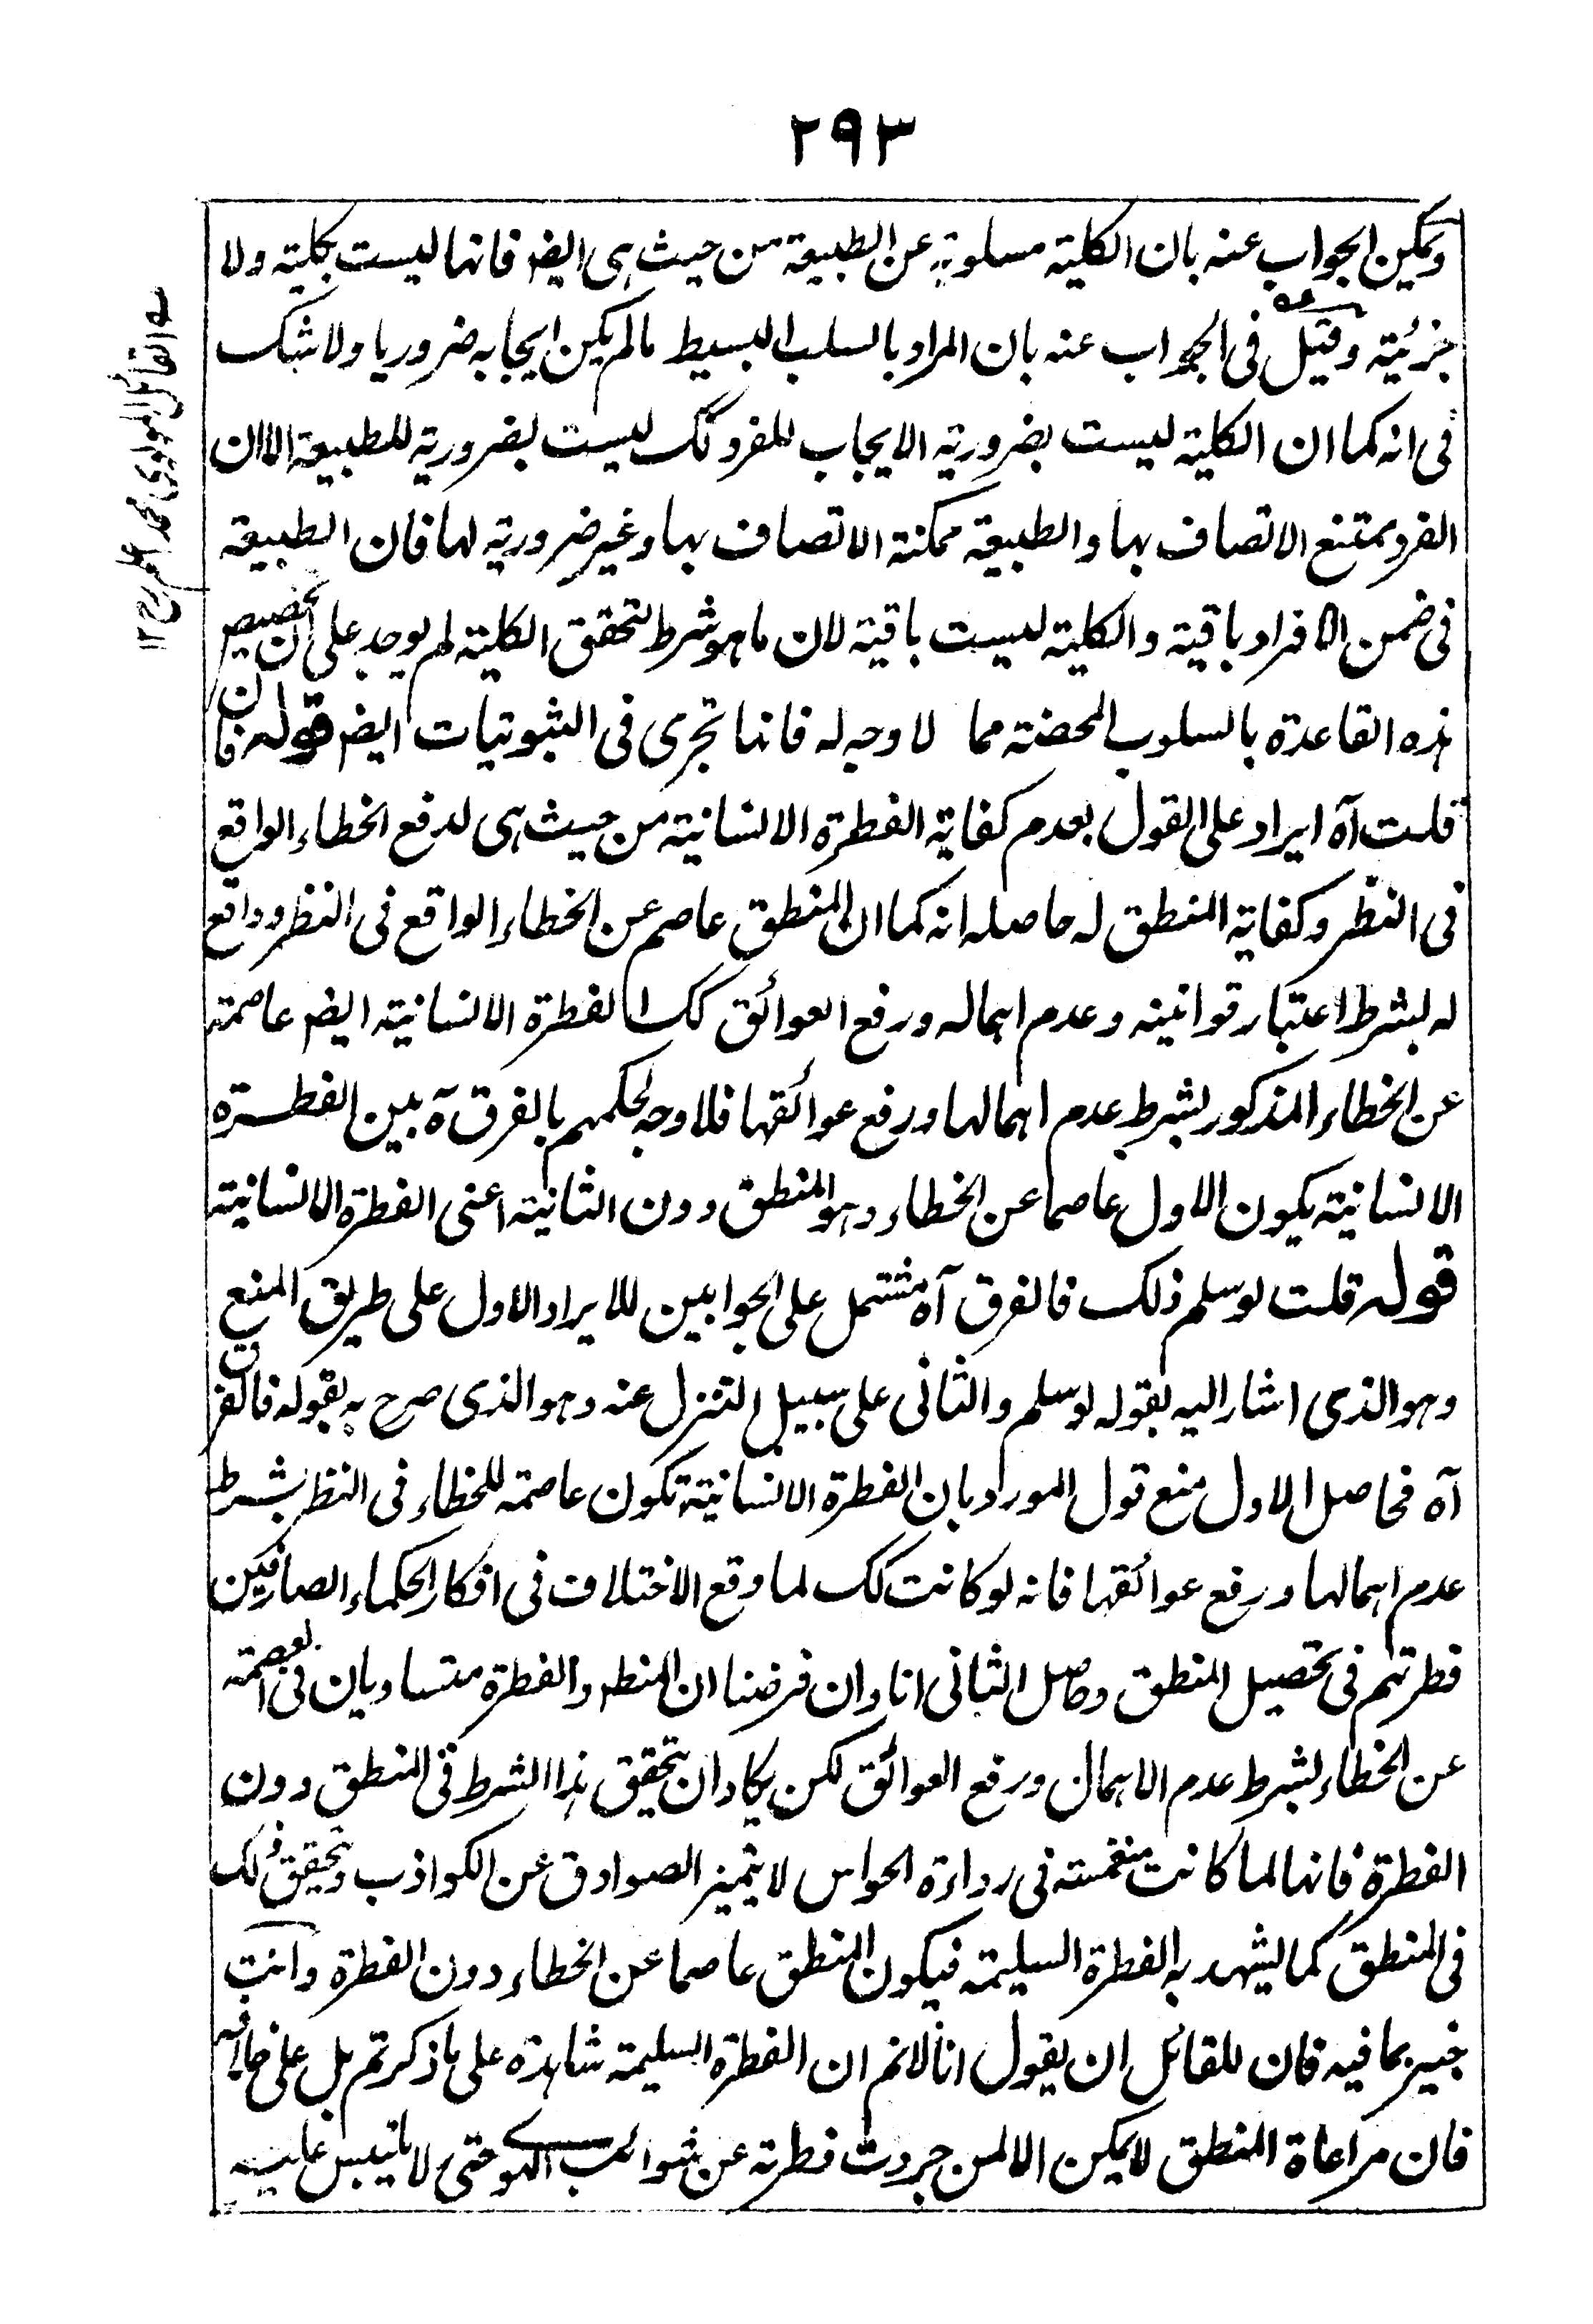 ٢٩٣
ويمكن الجواب عنه بان الكلية مسلوبة عن الطبيعة من حيث هى ايضا فانها ليست بكلية ولا
جزئية وقيل فى الجواب عنه بان المراد بالسلب البسيط مالم يكن ايجابه ضروريا ولا شك
فى انه كما ان الكلية ليست بضرورية الايجاب للفرد كك ليست بضرورية للطبيعة الا ان
الفرد يمتنع الاتصاف بها والطبيعة ممكنة الاتصاف بها وغير ضرورية لها فان الطبيعة
فى ضمن الافراد باقية والكلية ليست باقية لان ما هو شرط لتحقق الكلية لم يوجد على ان تخصيص
هذه القاعدة بالسلوب المحضة مما لا وجه له فانها تجرى فى الثبوتيات ايضا قوله فان
قلت آه ايراد على القول بعدم كفاية الفطرة الانسانية من حيث هى لدفع الخطاء الواقع
فى النظر وكفاية المنطق له حاصله انه كما ان المنطق عاصم عن الخطاء الواقع فى النظر ودافع
له بشرط اعتبار قوانينه وعدم اهماله ورفع العوائق كك الفطرة الانسانية ايضا عاصمة
عن الخطاء المذكور بشرط عدم اهمالها ورفع عوائقها فلا وجه لحكمهم بالفرق ة بين الفطرة
الانسانية يكون الاول عاصما عن الخطاء وهو المنطق دون الثانية اعنى الفطرة الانسانية
قوله قلت لو سلم ذلك فالفرق آه مشتمل على الجوابين للايراد الاول على طريق المنع
وهو الذى اشار اليه بقوله لو سلم والثانى على سبيل التنزل عنه وهو الذى صرح به بقوله فالفرق
آه فحاصل الاول منع قول المورد بان الفطرة الانسانية تكون عاصمة للخطاء فى النظر بشرط
عدم اهمالها ورفع عوائقها فانه لو كانت كك لما وقع الاختلاف فى افكار الحكماء الصارفين
فطرتهم فى تحصيل المنطق وحاصل الثانى انا وان فرضنا ان المنطق والفطرة متساويان فى العصمة
عن الخطاء بشرط عدم الاهمال ورفع العوائق لكن يكاد ان يتحقق هذا الشرط فى المنطق دون
الفطرة فانها لما كانت منغمسة فى رداءة الحواس لا يتميز الصوادق عن الكواذب وتحقيق ذلك
فى المنطق كما يشهد به الفطرة السليمة فيكون المنطق عاصما عن الخطاء دون الفطرة وانت
خبير بما فيه فان للقائل ان يقول انا لانم ان الفطرة السليمة شاهدة على ما ذكرتم بل على خلافه
فان مراعاة المنطق لا يمكن الا لمن جردت فطرته عن شوائب الهوى حتى لا يلتبس عليه
القائل المولوى محمد رح ١٢